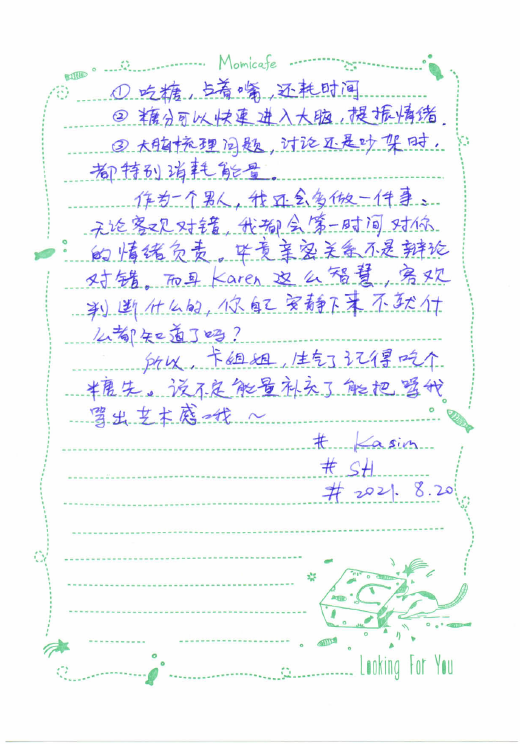 Momicafe
① 吃糖,占着嘴,还耗时间
② 糖分可以快速进入大脑,提振情绪.
③ 大脑梳理问题,讨论还是吵架时,
都特别消耗能量。
作为一个男人,我还会多做一件事:
无论客观对错,我都会第一时间对你
的情绪负责。毕竟亲密关系不是辩论
对错。而且 Karen 这么智慧,客观
判断什么的,你自己安静下来不就什
么都知道了吗?
所以,卡姐姐,生气了记得吃个
糖先。说不定能量补充了能把骂我
骂出艺术感哦~
# Kasim
# SH
# 2021. 8.20
Looking For You